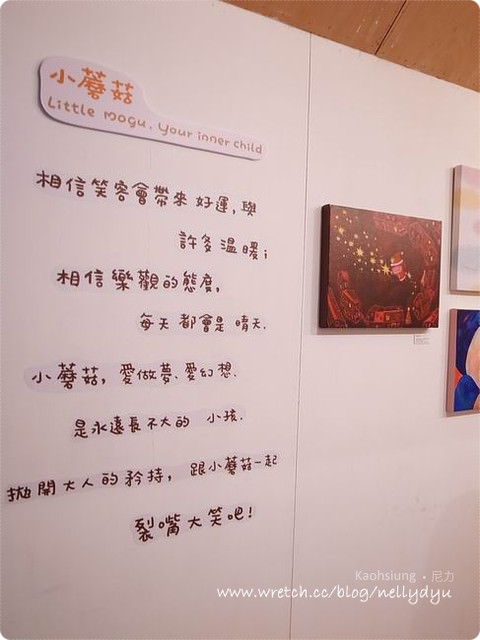 小蘑菇
Little mogu. Your inner child
相信笑容會帶來 好運,與
許多溫暖;
相信樂觀的態度,
每天都會是晴天.
小蘑菇,愛做夢、愛幻想.
是永遠長不大的 小孩.
拋開大人的矜持, 跟小蘑菇一起
裂嘴大笑吧!
Kaohsiung • 尼力
www.wretch.cc/blog/nellydyu